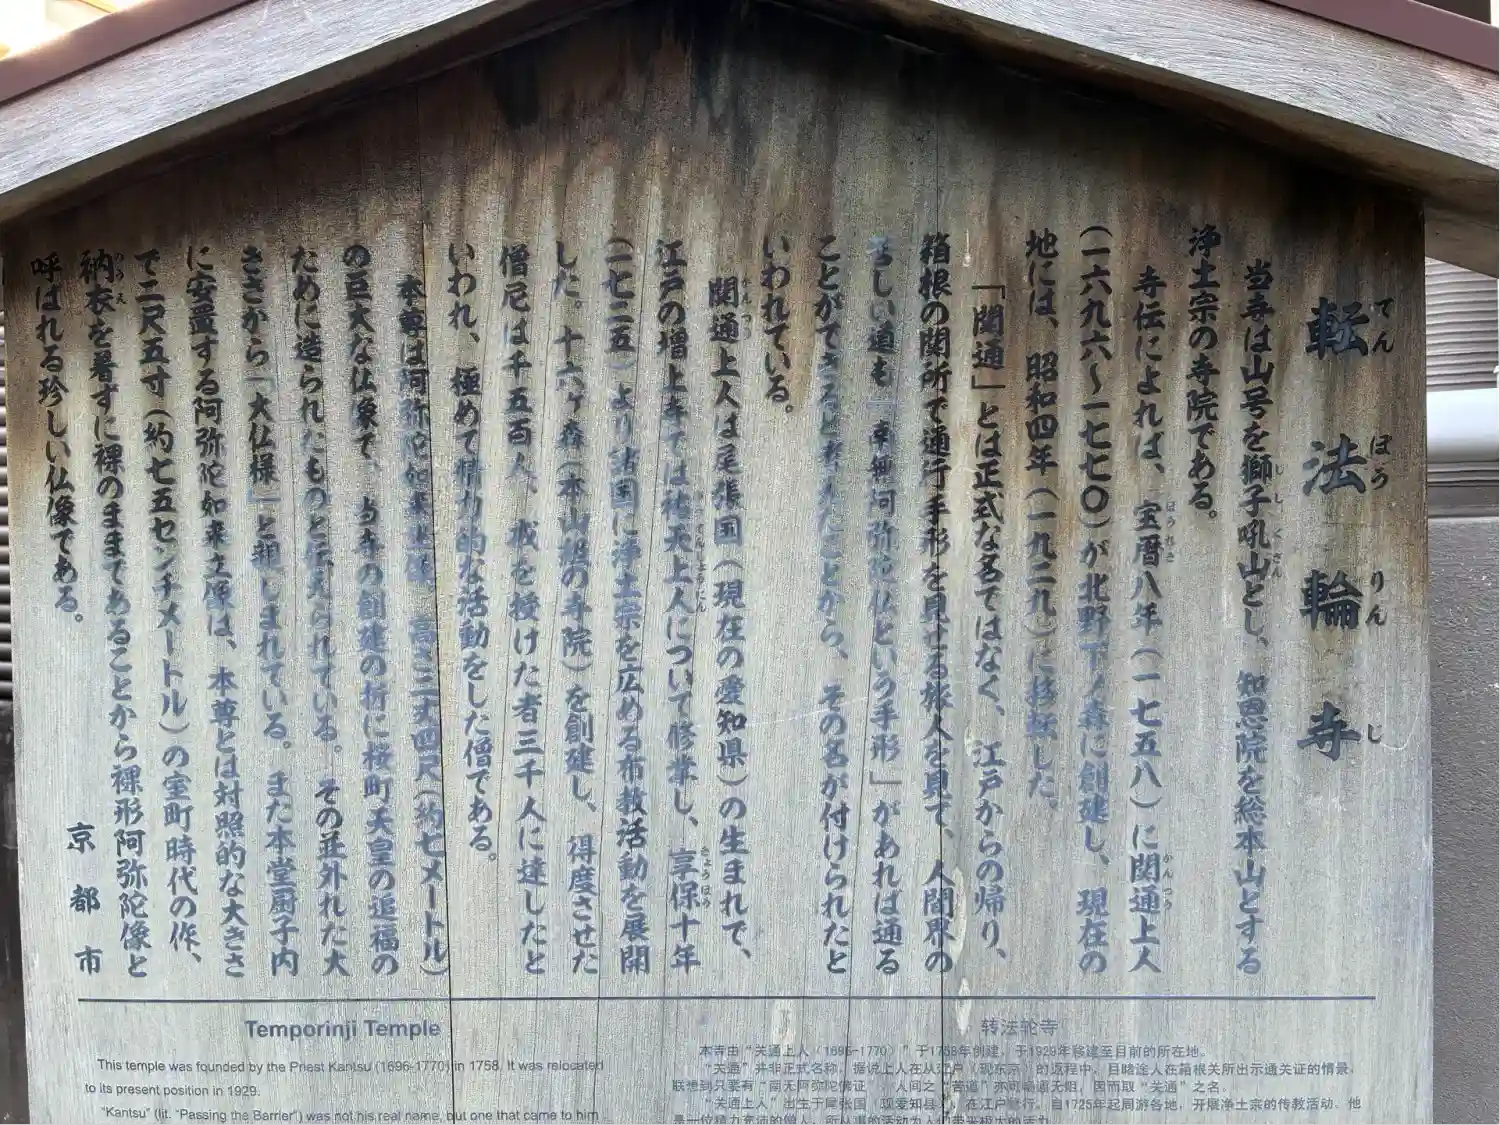 転法輪寺
てんぽうりんじ
当寺は山号を獅子吼山とし、知恩院を総本山とする
浄土宗の寺院である。
寺伝によれば、宝暦八年(一七五八)に関通上人
(一六九六～一七七〇)が北野下ノ森に創建し、現在の
地には、昭和四年(一九二九)に移転した。
「関通」とは正式な名ではなく、江戸からの帰り、
箱根の関所で通行手形を見せる旅人を見て、人間界の
苦しい道も「南無阿弥陀仏という手形」があれば通る
ことができると考えたことから、その名が付けられたと
いわれている。
関通上人は尾張国(現在の愛知県)の生まれで、
江戸の増上寺では祐天上人について修学し、享保十年
(一七二五)より諸国に浄土宗を広める布教活動を展開
した。十六ヶ森(本山格の寺院)を創建し、得度させた
僧尼は千五百人、戒を授けた者三千人に達したと
いわれ、極めて精力的な活動をした僧である。
本尊は阿弥陀如来坐像、高さ二丈四尺(約七メートル)
の巨大な仏像で、当寺の創建の折に桜町天皇の追福の
ために造られたものと伝えられている。その並外れた大
きさから「大仏様」と親しまれている。また本堂厨子内
に安置する阿弥陀如来立像は、本尊とは対照的な大きさ
で二尺五寸(約七五センチメートル)の室町時代の作、
衲衣を着ずに裸のままであることから裸形阿弥陀像と
呼ばれる珍しい仏像である。
京都市
Temporinji Temple
This temple was founded by the Priest Kantsu (1696-1770) in 1758. It was relocated
to its present position in 1929.
"Kantsu" (lit. "Passing the Barrier") was not his real name, but one that came to him
转法轮寺
本寺由“关通上人（1696-1770）”于1758年创建，于1929年移建至目前的所在地。
“关通”并非正式名称，据说上人在从江户（现东京）的返程中，目睹途人在箱根关所出示通关证的情景，
联想到只要有“南无阿弥陀佛证”，人间之“苦道”亦可畅通无阻，因而取“关通”之名。
“关通上人”出生于尾张国（现爱知县），在江户修行，自1725年起周游各地，开展净土宗的传教活动。他
是一位精力充沛的僧人，所从事的活动为人们带来极大的